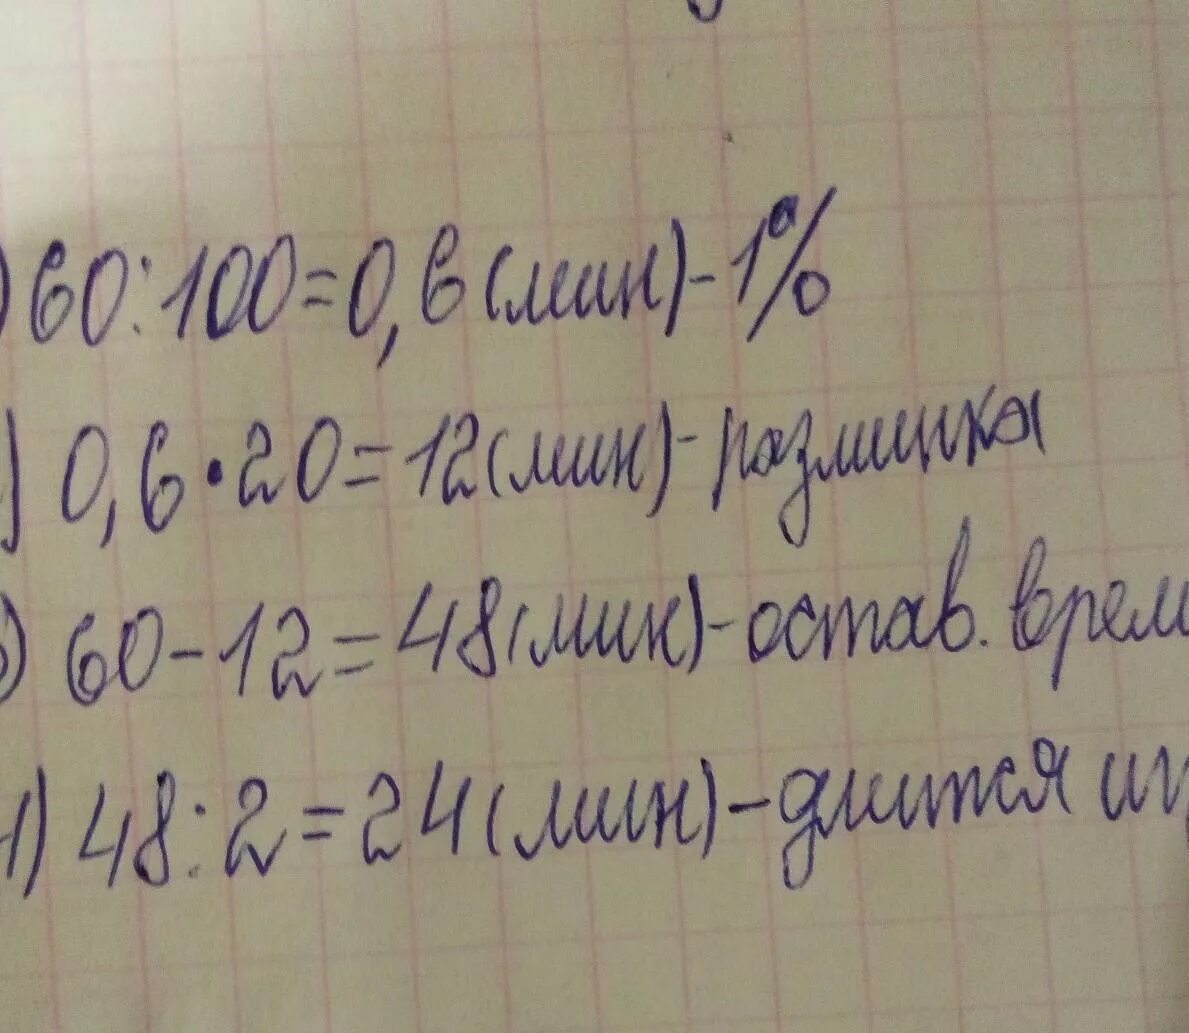 ) 60:100=0,6(мин)-1%
) 0,6·20=12(мин)-разминка
) 60-12=48(мин)-остав. врем
4) 48:2=24(мин)-длится иг